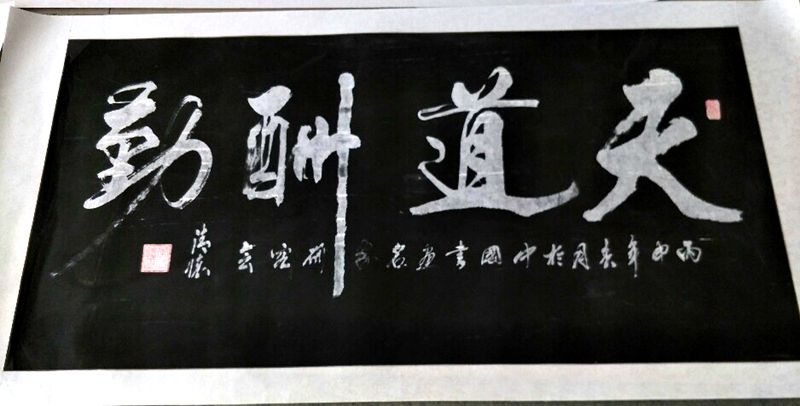 天道酬勤
丙申年春月於中國書畫名家研究会
清懷